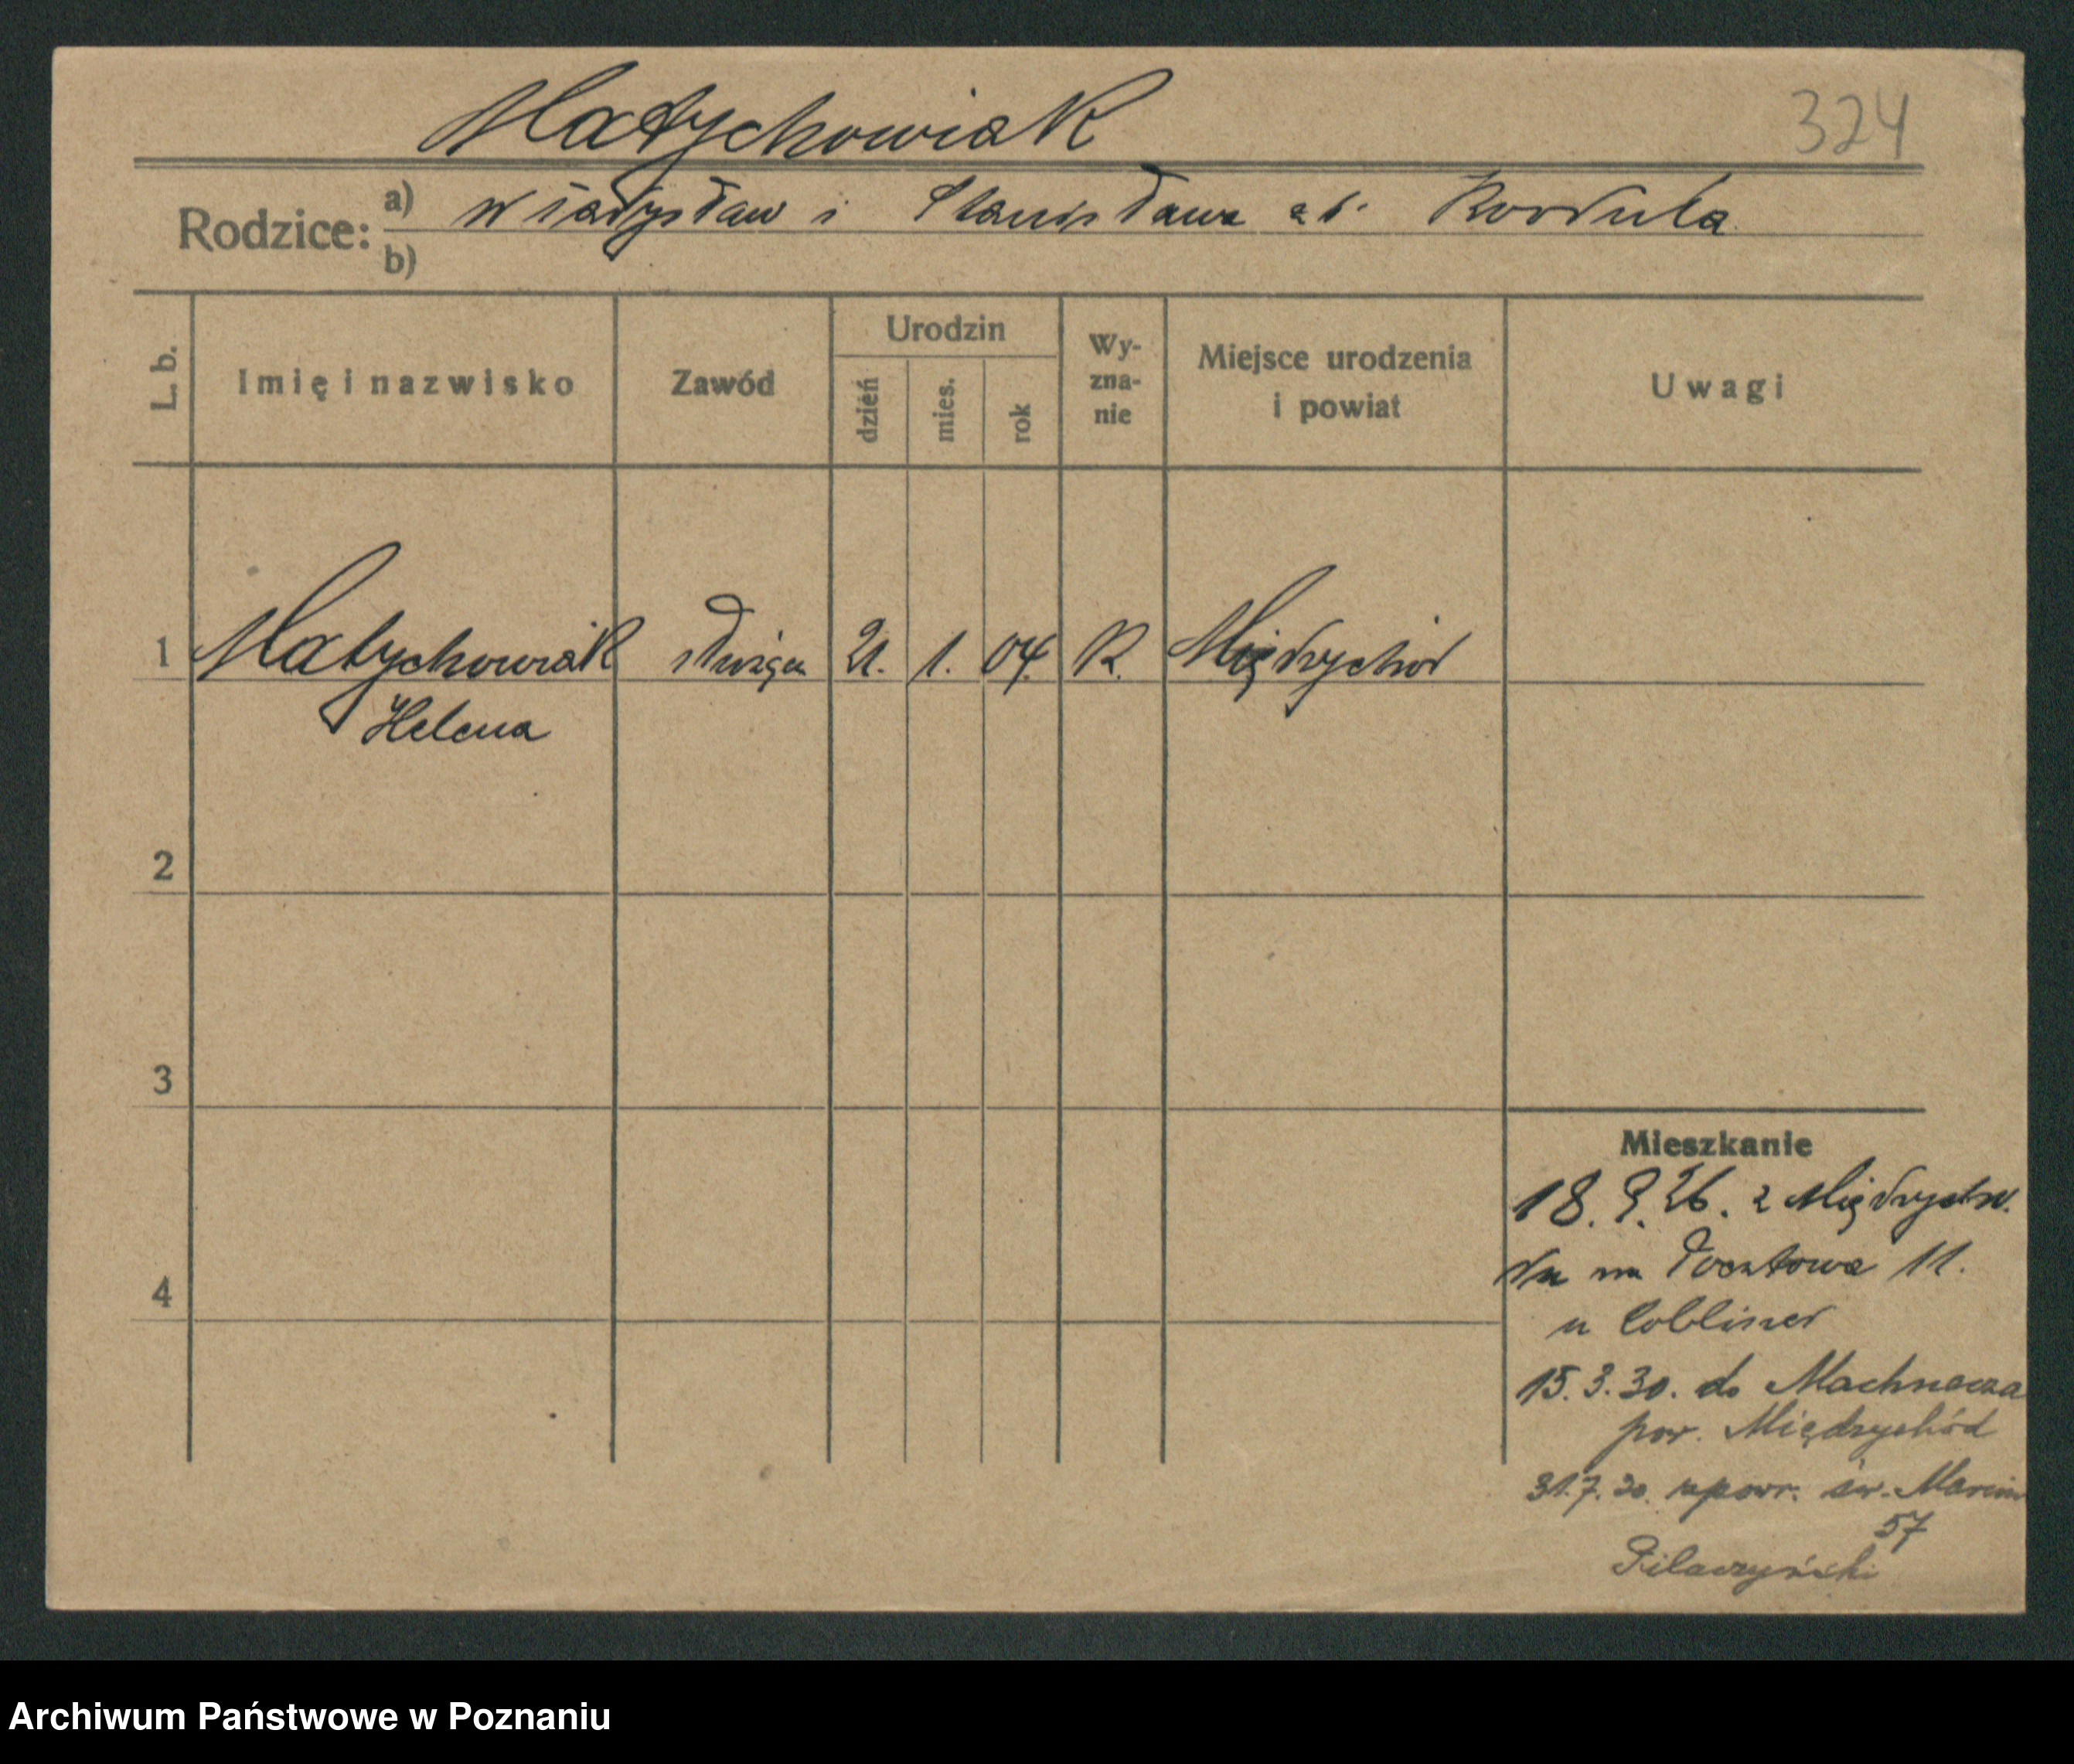 Matychowiak
324
Rodzice: a) Władysław i Stanisława zd. Kordula
b)
L. b. Imię i nazwisko Zawód Urodzin dzień mies. rok Wy-zna-nie Miejsce urodzenia i powiat Uwagi
1 Matychowiak służąca 21. 1. 04. K. Międzychód
Helena
2
3
Mieszkanie
18. 9. 26. z Międzycho.
4
du na Pocztowa 11.
u
15. 3. 30. do Machnacza
pow. Międzychód
31.7.30. napowr. św. Marcin
57
Pilaczyński
Archiwum Państwowe w Poznaniu